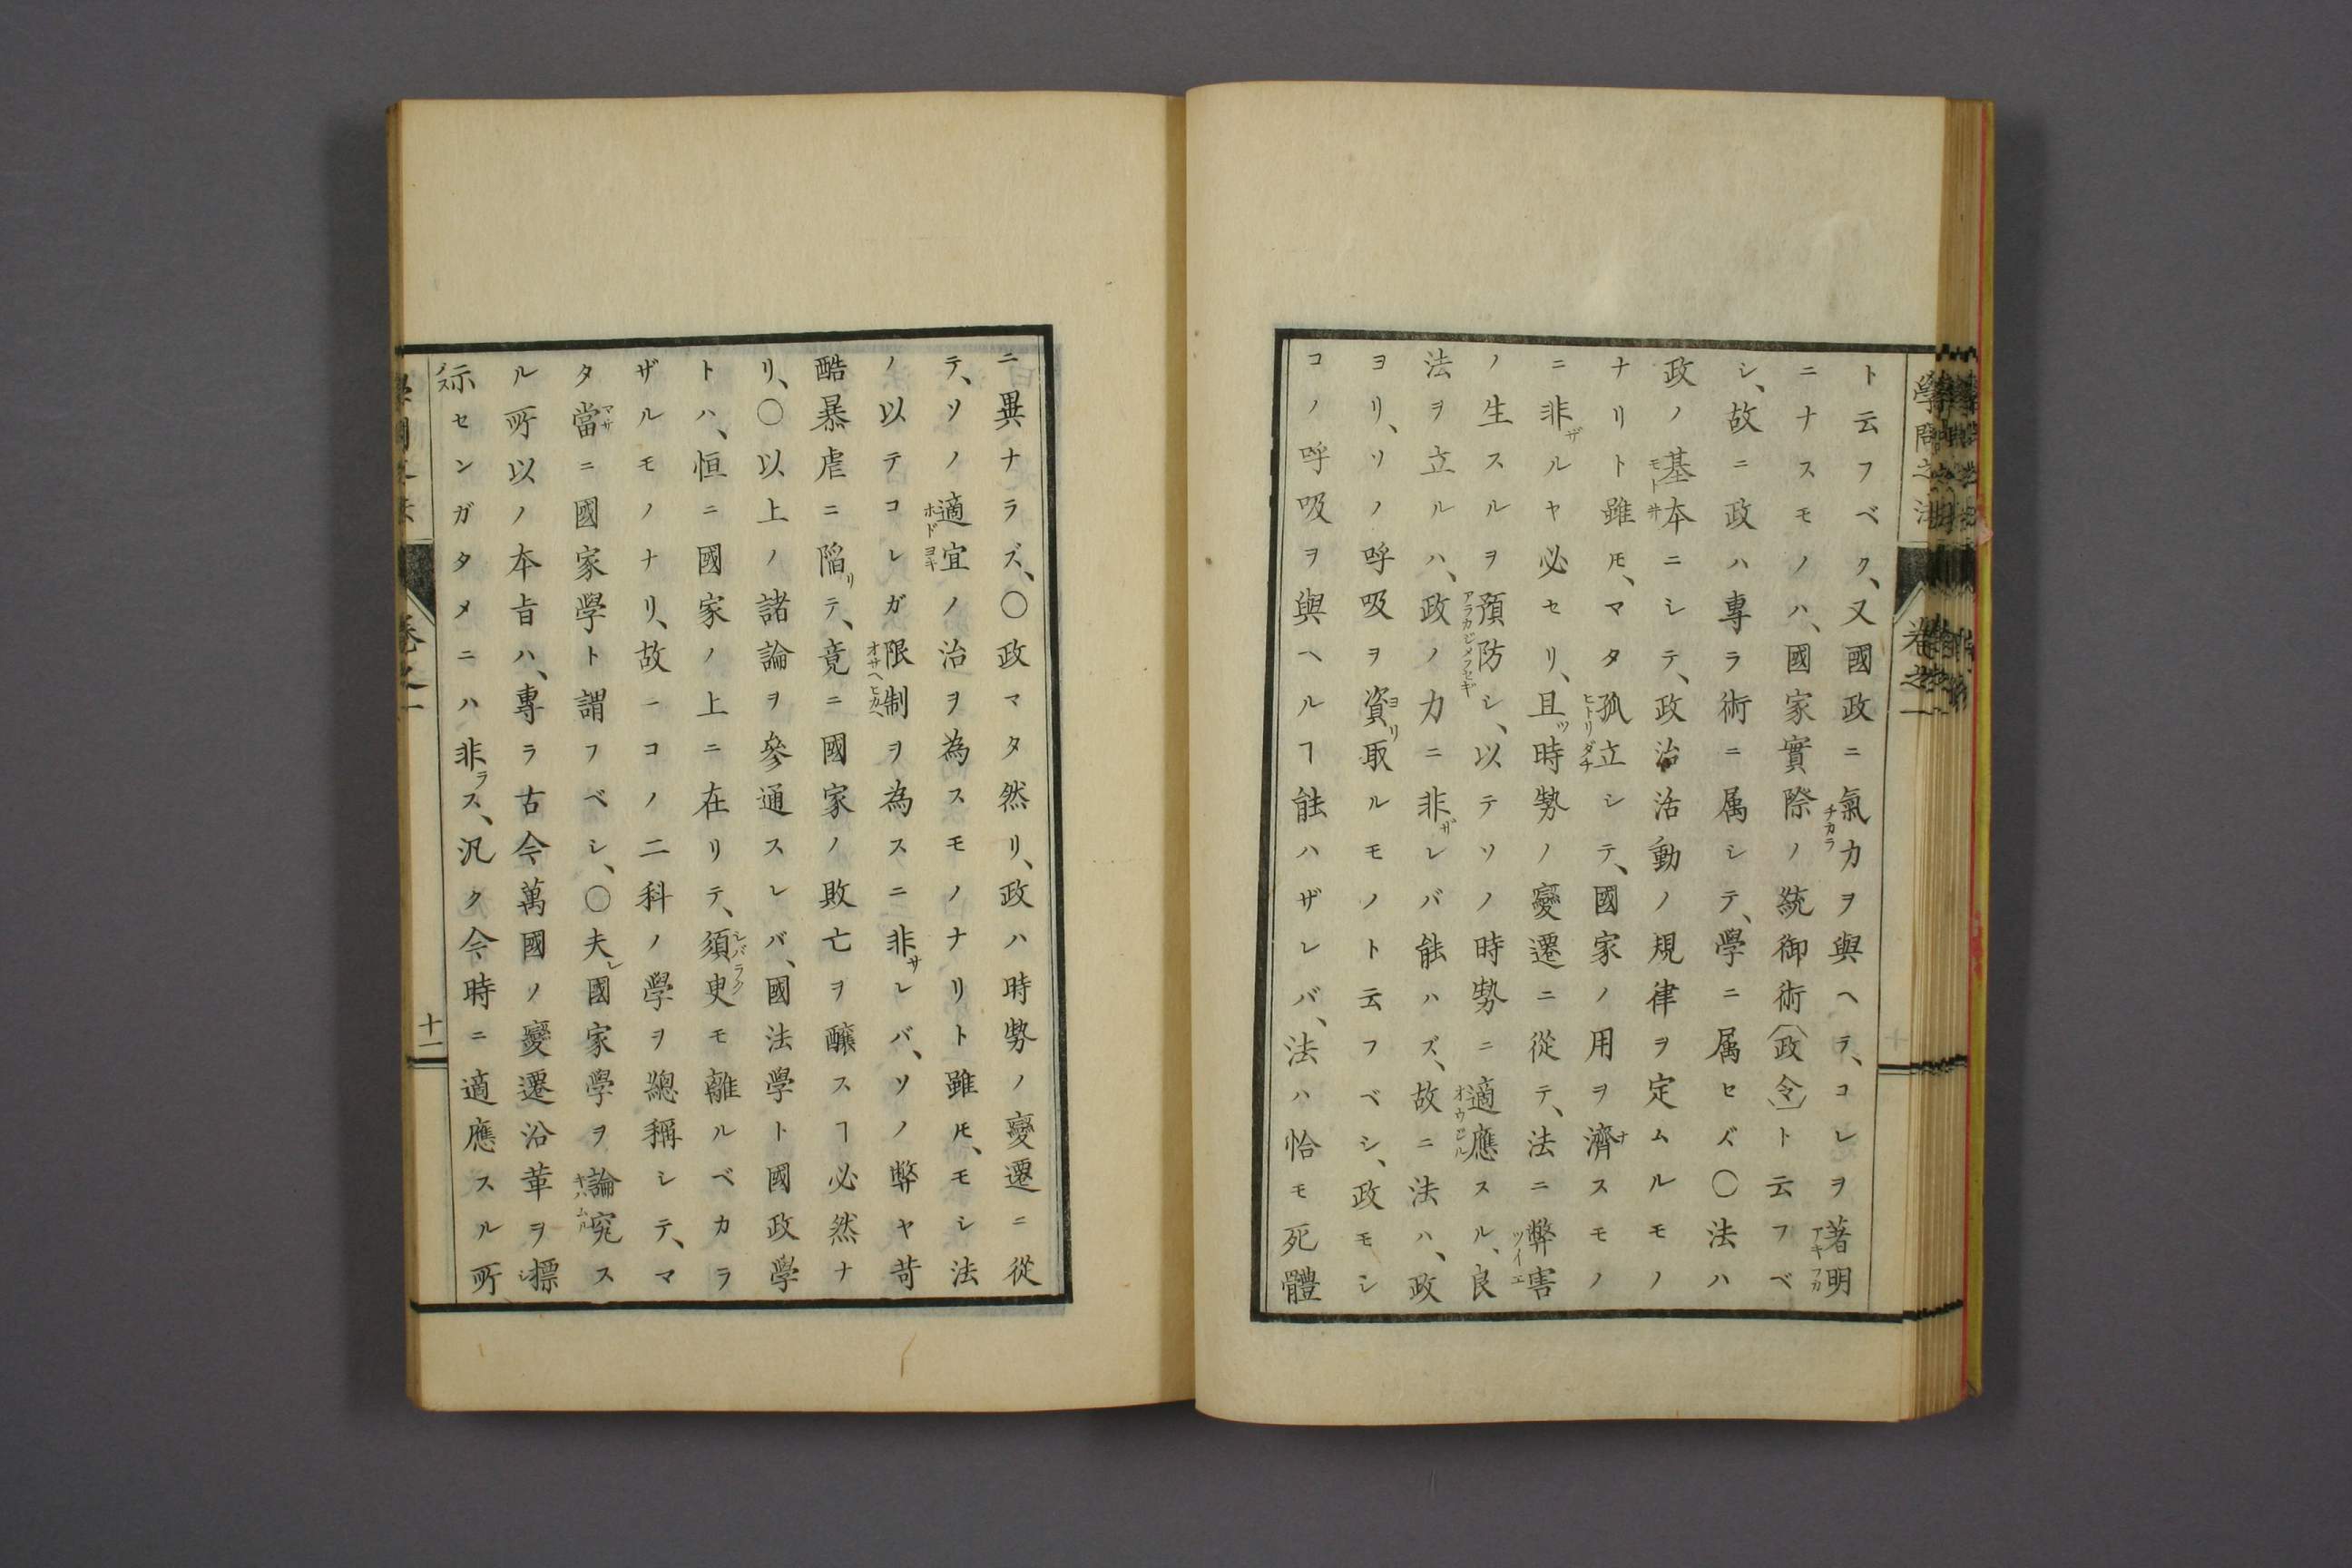 學問之法 卷之一
ト云フベク、又國政ニ氣力ヲ與ヘテ、コレヲ著明
ニナスモノハ、國家實際ノ統御術(政令)ト云フベ
シ、故ニ政ハ專ラ術ニ属シテ、學ニ属セズ〇法ハ
政ノ基本ニシテ、政治活動ノ規律ヲ定ムルモノ
ナリト雖𪜈、マタ孤立シテ、國家ノ用ヲ濟スモノ
ニ非ルヤ必セリ、且時勢ノ變遷ニ從テ、法ニ弊害
ノ生スルヲ預防シ、以テソノ時勢ニ適應スル、良
法ヲ立ルハ、政ノ力ニ非レバ能ハズ、故ニ法ハ、政
ヨリ、ソノ呼吸ヲ資取ルモノト云フベシ、政モシ
コノ呼吸ヲ與ヘルヿ能ハザレバ、法ハ恰モ死體
ニ異ナラズ、〇政マタ然リ、政ハ時勢ノ變遷ニ從
テ、ソノ適宜ノ治ヲ為スモノナリト雖𪜈、モシ法
ノ以テコレガ限制ヲ為スニ非レバ、ソノ弊ヤ苛
酷暴虐ニ陷テ、竟ニ國家ノ敗亡ヲ釀スヿ必然ナ
リ、〇以上ノ諸論ヲ參通スレバ、國法學ト國政學
トハ、恒ニ國家ノ上ニ在リテ、須臾モ離ルベカラ
ザルモノナリ、故ニコノ二科ノ學ヲ總稱シテ、マ
タ當ニ國家學ト謂フベシ、〇夫國家學ヲ論究ス
ル所以ノ本旨ハ、專ラ古今萬國ノ變遷沿革ヲ標
示センガタメニハ非ス、汎ク今時ニ適應スル所
卷之一 十一